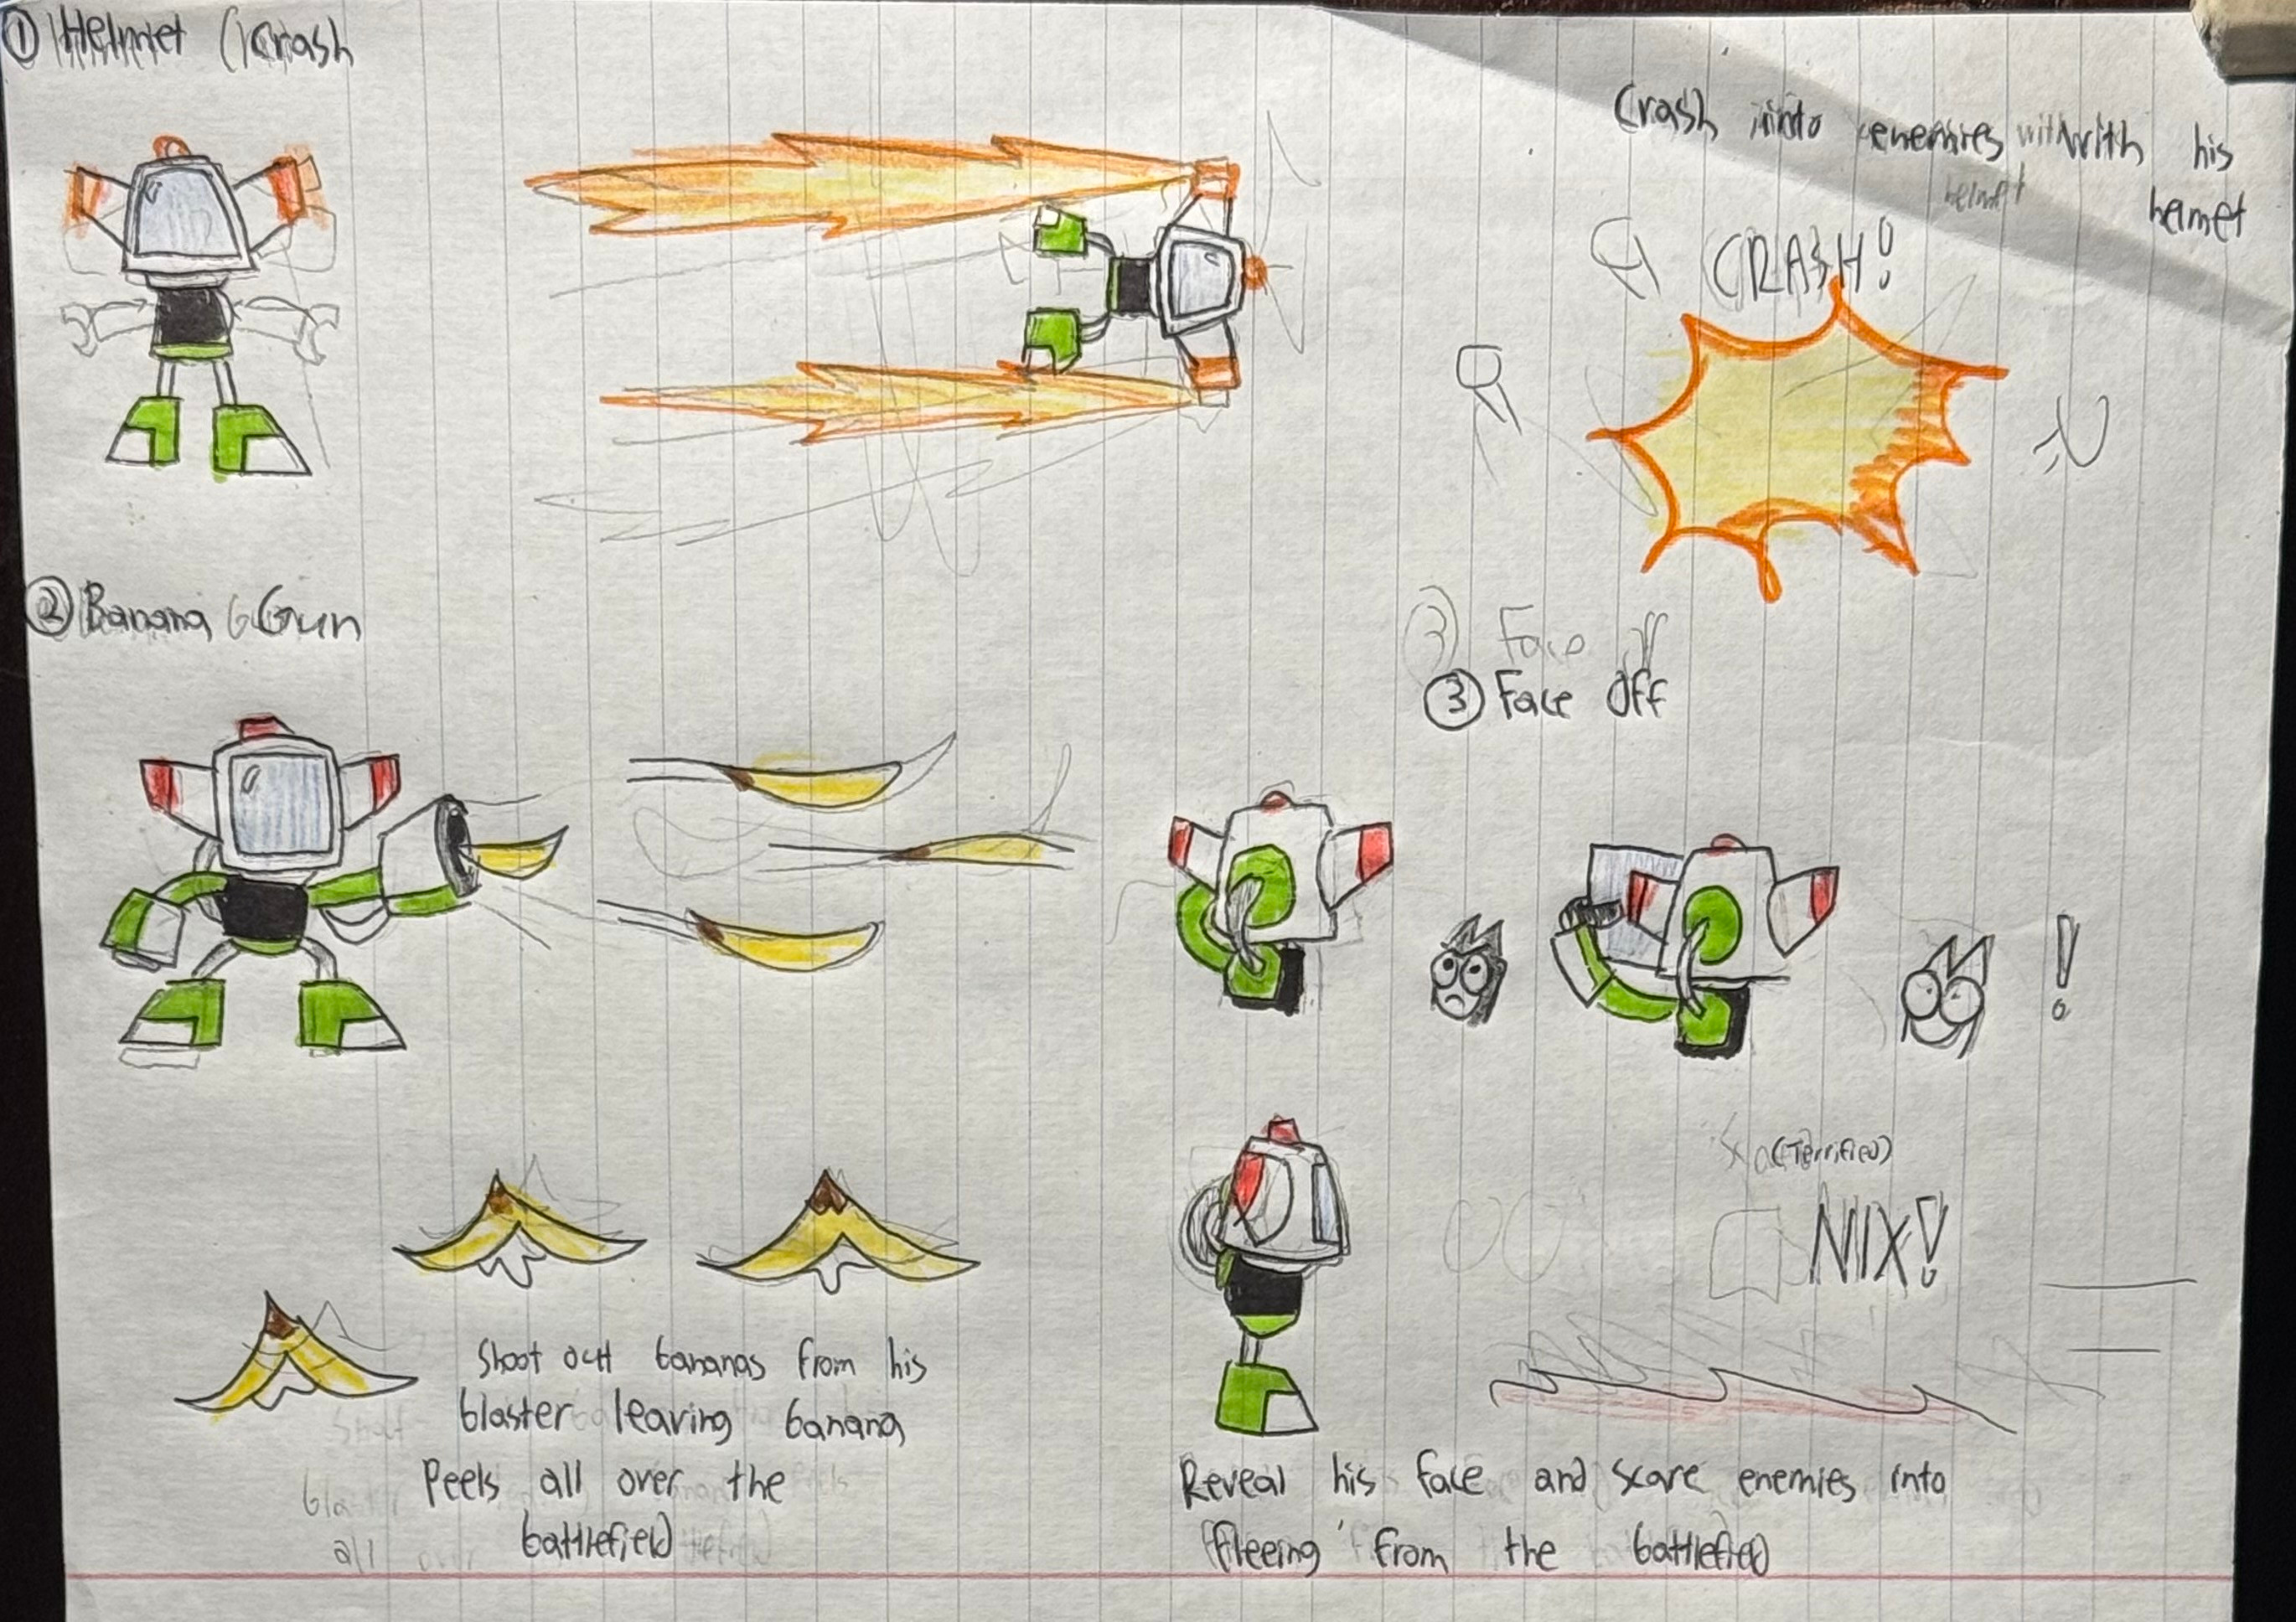 ① Helmet Crash
Crash into enemies with his
helmet
CRASH!
② Banana Gun
③ Face Off
③ Face Off
!
(Terrified)
NIX!
Shoot out bananas from his
blaster leaving banana
Peels all over the
battlefield
Reveal his face and scare enemies into
fleeing from the battlefield